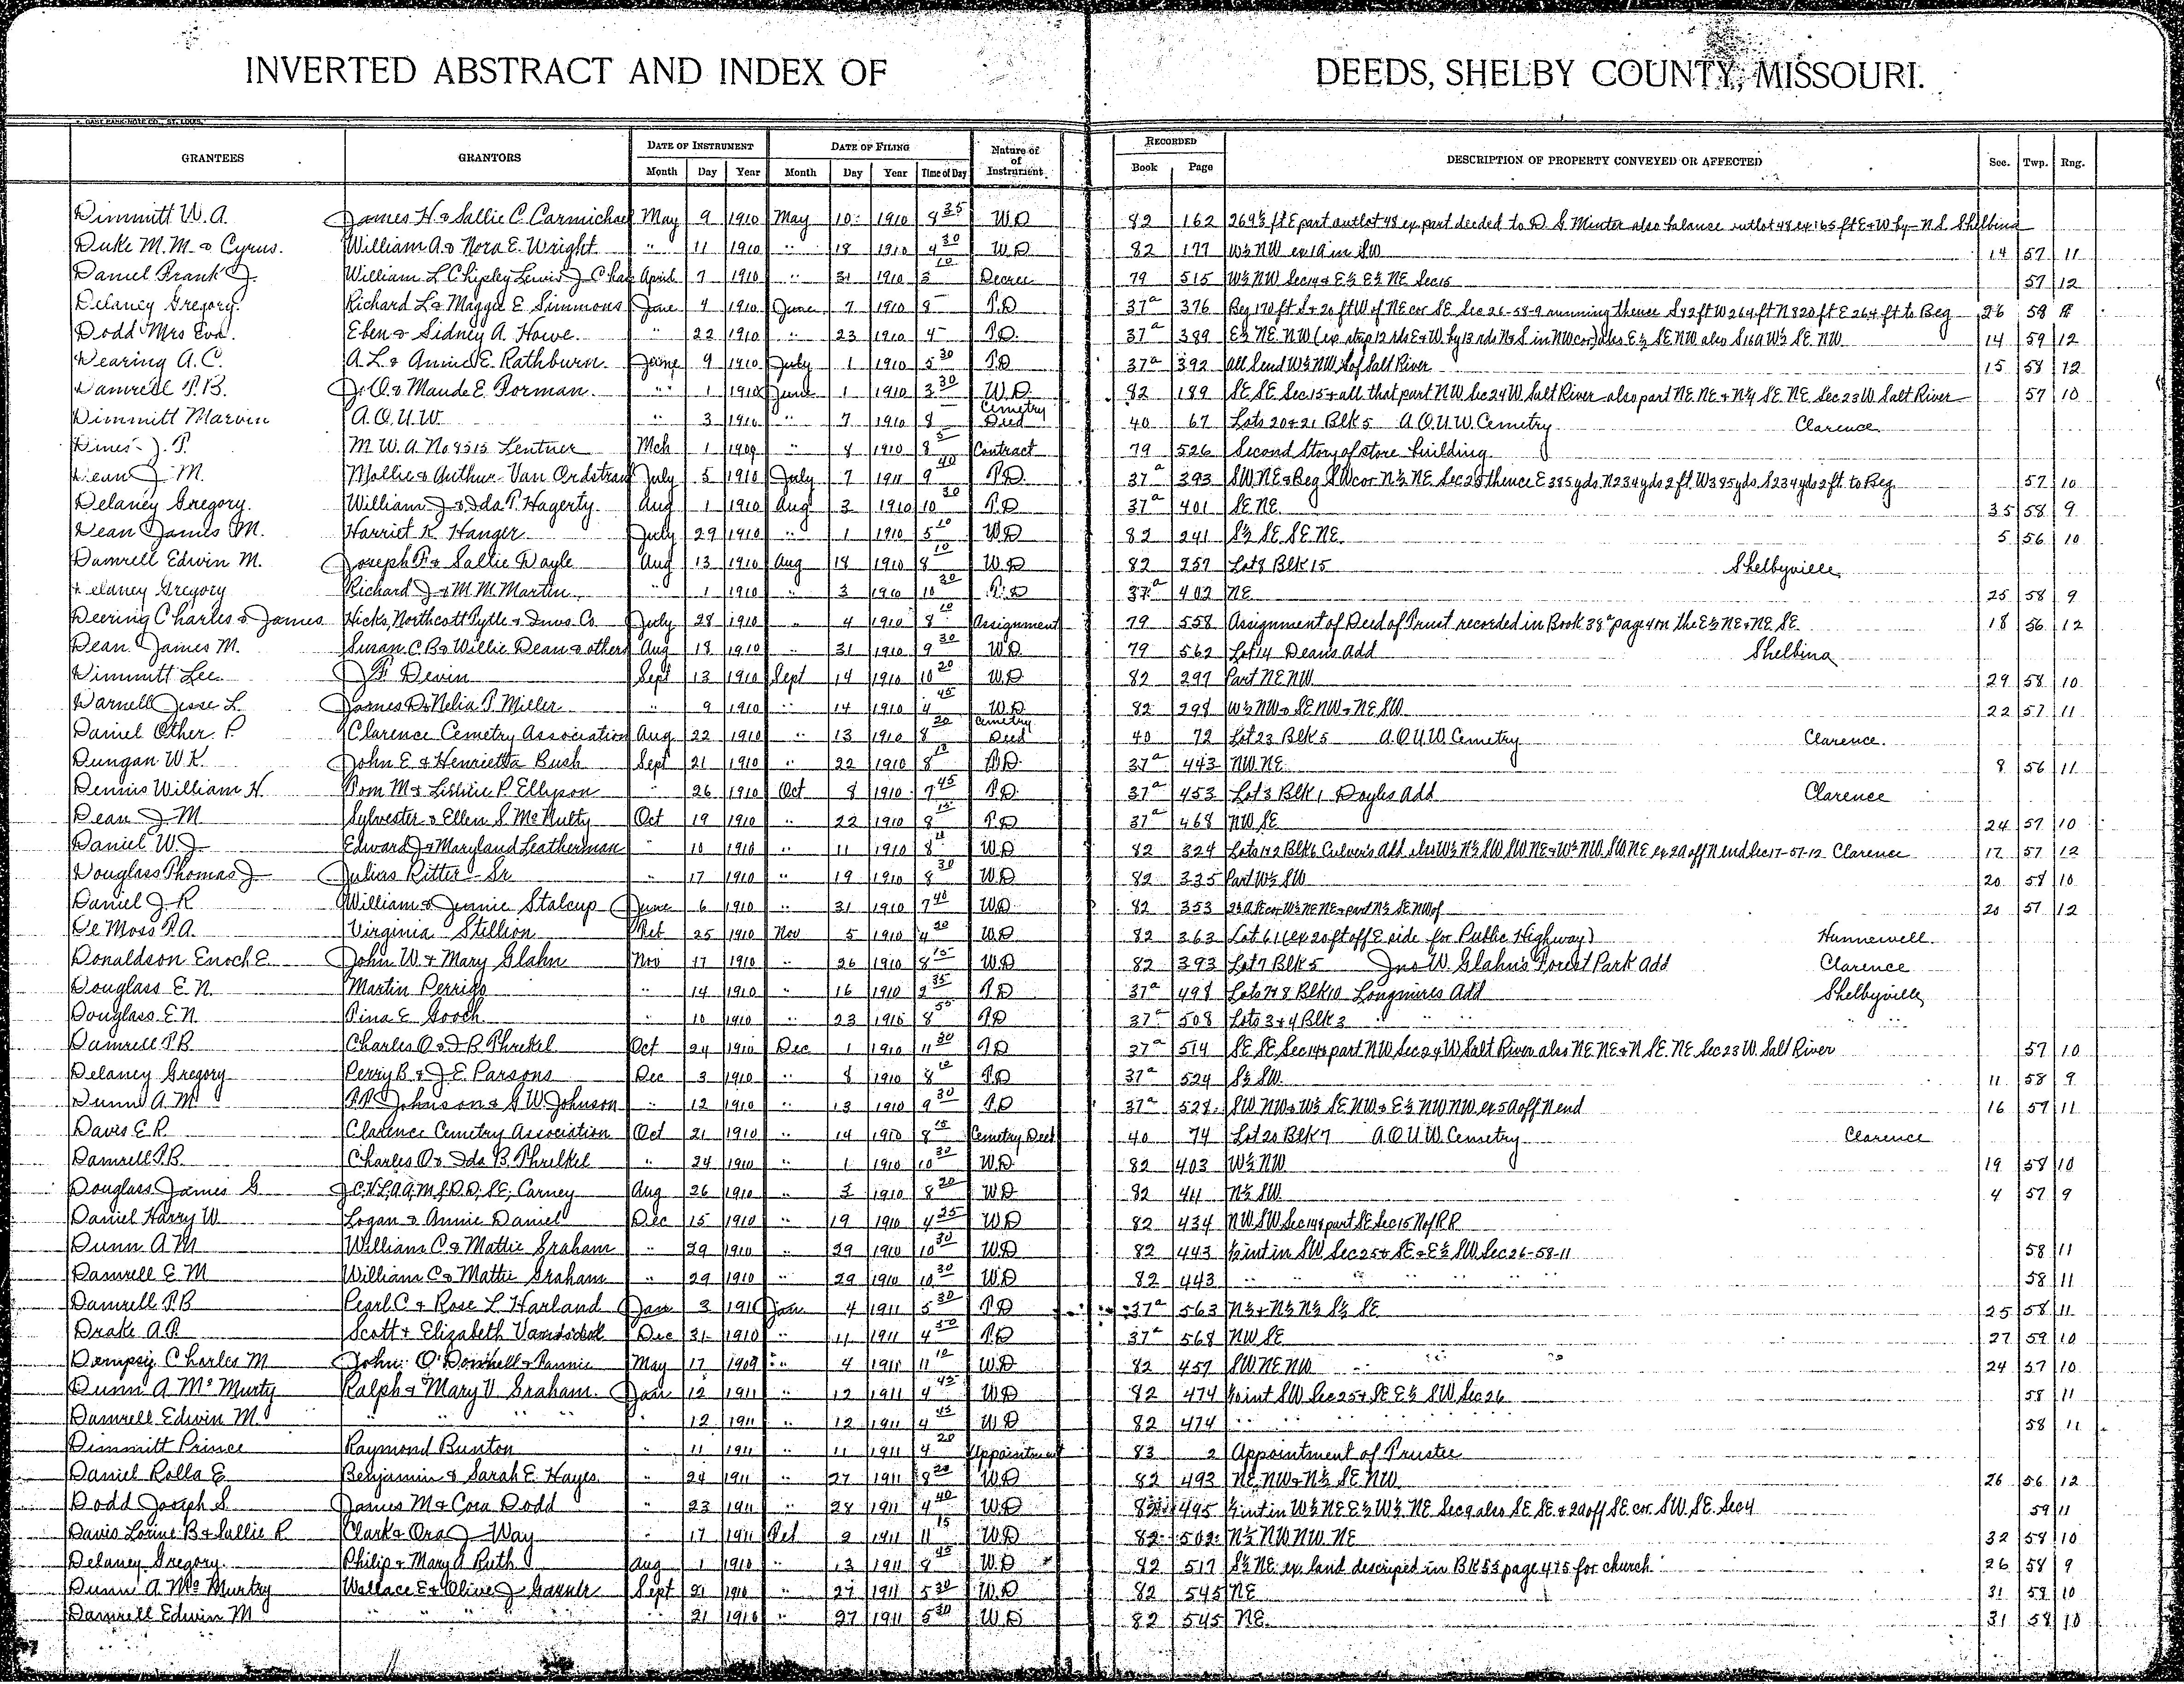 INVERTED ABSTRACT AND INDEX OF DEEDS, SHELBY COUNTY, MISSOURI.
GRANTEES GRANTORS DATE OF INSTRUMENT DATE OF FILING Nature of Instrument RECORDED DESCRIPTION OF PROPERTY CONVEYED OR AFFECTED Sec. Twp. Rng.
Month Day Year Month Day Year Time of Day Book Page
Dimmitt W. A. James H & Sallie C. Carmichael May 9 1910 May 10 1910 8 35 W.D 82 162 269½ ft E part outlot 48 ex part deeded to D. G Minter also balance outlot 48 ex 165 ft E & W by N.S. Shelbina
Duke M. M. & Cyrus. William A. & Nora E. Wright " 11 1910 " 18 1910 4 30 W.D 82 177 W½ NW ex 1a in SW 14 57 11
Daniel Frank J. William L Chipley Lewis J Chas April 7 1910 " 31 1910 3 10 Decree 79 515 W½ NW Sec 14 & E½ E½ NE Sec 15 57 12
Delaney Gregory. Richard L & Maggie E Simmons June 4 1910 June 7 1910 8 T.D 37a 376 Beg 170 ft S & 20 ft W of NE cor SE Sec 26-58-9 running thence S 42 ft W 264 ft N 820 ft E 264 ft to Beg 26 58 9
Dodd Mrs Eva. Eben & Sidney A. Howe. " 22 1910 " 23 1910 4 T.D. 37a 389 E½ NE NW (ex strip 12 rds E & W by 13 rds N & S in NW cor) also E½ SE NW also S16a W½ SE NW 14 59 12
Dearing A. C. A. L. & Annie E. Rathburn. June 9 1910 July 1 1910 5 30 T.D 37a 392 all Send W½ NW S of Salt River 15 58 12
Damrell T. B. J. O. & Maude E. Forman. " 1 1910 June 1 1910 3 30 W.D. 82 189 SE SE Sec 15 & all that part NW Sec 24 W Salt River also part NE NE & N½ SE NE Sec 23 W Salt River 57 10
Dimmitt Marvin A.O.U.W. " 3 1910 " 7 1910 8 Cemetry Deed 40 67 Lots 20 & 21 Blk 5 A.O.U.W. Cemetry Clarence
Dines J. T. M. W. A. No 8515 Lentner Mch 1 1909 " 8 1910 8 5 Contract 79 526 Second Story of store building
Dean J M. Mollie & Arthur Van Ordstrand July 5 1910 July 7 1911 9 40 T.D. 37a 393 SW NE & Beg SW cor N½ NE Sec 25 thence E 385 yds N 234 yds 2 ft W 385 yds S 234 yds 2 ft to Beg 57 10
Delaney Gregory. William J & Ida T. Hagerty. Aug 1 1910 Aug 3 1910 10 30 T.D 37a 401 SE NE. 35 58 9
Dean James M. Harriet K. Hanger July 29 1910 " 1 1910 5 10 W.D 82 241 S½ SE SE NE. 5 56 10
Damrell Edwin M. Joseph F & Sallie Doyle Aug 13 1910 Aug 18 1910 8 10 W.D 82 257 Lot 8 Blk 15 Shelbyville
Delaney Gregory Richard J & M. M. Martin " 1 1910 " 3 1910 10 30 T.D 37a 402 NE 25 58 9
Deering Charles & James Hicks, Northcott Pytle & Invs Co. July 28 1910 " 4 1910 8 10 Assignment 79 558 Assignment of Deed of Trust recorded in Book 38a page 4 on the E½ NE & NE SE 18 56 12
Dean James M. Susan C B & Willie Dean & others Aug 18 1910 " 31 1910 9 30 W.D. 79 562 Lot 14 Deans Add Shelbina
Dimmitt Lee J F Devin Sept 13 1910 Sept 14 1910 10 20 W.D 82 297 Part NE NW 29 58 10
Darnell Jesse L. James D & Nelia T. Miller " 9 1910 " 14 1910 4 45 W.D 82 298 W½ NW & SE NW & NE SW 22 57 11
Daniel Other P Clarence Cemetry Association Aug 22 1910 " 13 1910 8 20 Cemetry Deed 40 72 Lot 23 Blk 5 A.O.U.W. Cemetry Clarence.
Dungan W. K. John E. & Henrietta Bush Sept 21 1910 " 22 1910 8 15 T.D. 37a 443 NW NE 8 56 11
Dennis William H. Tom M & Lishie P. Ellyson " 26 1910 Oct 8 1910 7 45 T.D. 37a 453 Lot 3 Blk 1 Doyles Add Clarence
Dean J M Sylvester & Ellen S McNulty Oct 19 1910 " 22 1910 8 15 T.D 37a 468 NW SE 24 57 10
Daniel W. J. Edward J & Maryland Leatherman " 10 1910 " 11 1910 8 W.D 82 324 Lots 1 & 2 Blk 6 Culver's Add also W½ N½ SW SW NE & W½ NW SW NE ex 2a off N end Sec 17-57-12 Clarence 17 57 12
Douglass Thomas J Julius Ritter Sr " 17 1910 " 19 1910 8 30 W.D 82 335 Part W½ SW 20 58 10
Daniel J. R. William & Jennie Stalcup June 6 1910 " 31 1910 7 40 W.D 82 353 2½a SE cor W½ NE NE & part N½ SE NW of 20 57 12
De Moss P.A. Virginia Stillion Oct 25 1910 Nov 5 1910 4 20 W.D 82 363 Lot 61 (ex 20 ft off E side for Public Highway) Hunnewell.
Donaldson Enoch E. John W. & Mary Glahn Nov 17 1910 " 26 1910 8 15 W.D 82 393 Lot 7 Blk 5 Jno W. Glahn's Forest Park Add Clarence
Douglass E. N. Martin Perrigo " 14 1910 " 16 1910 2 35 T.D 37a 498 Lots 7 & 8 Blk 10 Longmires Add Shelbyville
Douglass E. N. Tina E Gooch " 10 1910 " 23 1910 8 55 T.D 37a 508 Lots 3 & 4 Blk 3 " " " "
Damrell T. B Charles O & I B Threlkel Oct 24 1910 Dec 1 1910 11 30 T.D 37a 514 SE SE Sec 14 & part NW Sec 24 W Salt River also NE NE & N SE NE Sec 23 W. Salt River 57 10
Delaney Gregory Perry B & J. E. Parsons Dec 3 1910 " 8 1910 8 10 T.D 37a 524 S½ SW. 11 58 9
Dunn A. M. P.P. Johnson & G W Johnson " 12 1910 " 13 1910 9 30 T.D 37a 528 SW NW & W½ SE NW & E½ NW NW ex 5a off N end 16 57 11
Davis E. R. Clarence Cemetry Association Oct 21 1910 " 14 1910 8 15 Cemetry Deed 40 74 Lot 20 Blk 7 A.O.U.W. Cemetry Clarence
Damrell T. B. Charles O & Ida B. Threlkel " 24 1910 " 1 1910 10 30 W.D. 82 403 W½ NW 19 58 10
Douglass James G J.C.V.L.A.A.M.J.D.D.S.E. Carney Aug 26 1910 " 3 1910 8 20 W.D 82 411 N½ SW 4 57 9
Daniel Harry W Logan & Annie Daniel Dec 15 1910 " 19 1910 4 25 W.D 82 434 NW SW Sec 14 & part SE Sec 15 N of RR
Dunn A M William C. & Mattie Graham " 29 1910 " 29 1910 10 30 W.D 82 443 ½ int in SW Sec 25 & SE & E½ SW Sec 26-58-11 58 11
Damrell E M William C & Mattie Graham " 29 1910 " 29 1910 10 30 W.D 82 443 " " " " 58 11
Damrell T B Pearl C & Rose L Harland Jan 3 1911 Jan 4 1911 5 30 T.D 37a 563 N½ & N½ N½ S½ SE 25 58 11
Drake A. P. Scott & Elizabeth Dec 31 1910 " 11 1911 4 50 T.D 37a 568 NW SE 27 59 10
Dempsey Charles M John O'Donnell & Fannie May 17 1909 " 4 1911 11 10 W.D 82 457 SW NE NW 24 57 10
Dunn A McMurty Ralph & Mary V Graham. Jan 12 1911 " 12 1911 4 45 W.D 82 474 ½ int SW Sec 25 & SE E½ SW Sec 26 58 11
Damrell Edwin M. " " " " 12 1911 " 12 1911 4 45 W.D 82 474 " " " " 58 11
Dimmitt Prince Raymond Bunton " 11 1911 " 11 1911 4 20 Appointment 83 2 Appointment of Trustee
Daniel Rolla E Benjamin & Sarah E. Hayes " 24 1911 " 27 1911 8 20 W.D 82 493 NE NW & N½ SE NW 26 56 12
Dodd Joseph S. James M & Cora Dodd " 23 1911 " 28 1911 4 40 W.D 82 495 ½ int in W½ NE E½ W½ NE Sec 9 also SE SE & 2a off SE cor SW SE Sec 4 59 11
Davis Lorine B & Sallie R Clark & Ora J Way " 17 1911 Feb 2 1911 11 15 W.D 82 502 N½ NW NW NE 32 58 10
Delaney Gregory. Philip & Mary A Ruth Aug 1 1910 " 13 1911 8 45 W.D 82 517 S½ NE ex land descriped in Bk 53 page 475 for church 26 58 9
Dunn A. McMurtry Wallace E & Olive J Sept 21 1910 " 27 1911 5 30 W.D 82 545 NE 31 58 10
Damrell Edwin M " " " " 21 1910 " 27 1911 5 30 W.D 82 545 NE. 31 58 10